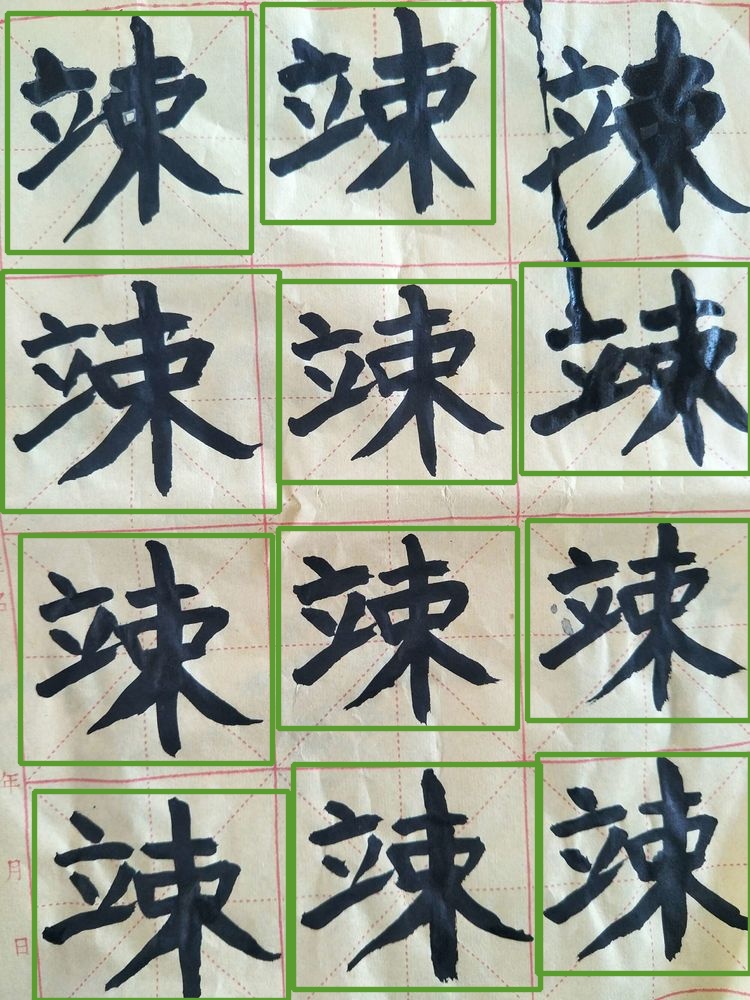 竦 竦 竦
竦 竦 竦
竦 竦 竦
年
竦 竦 竦
月
日